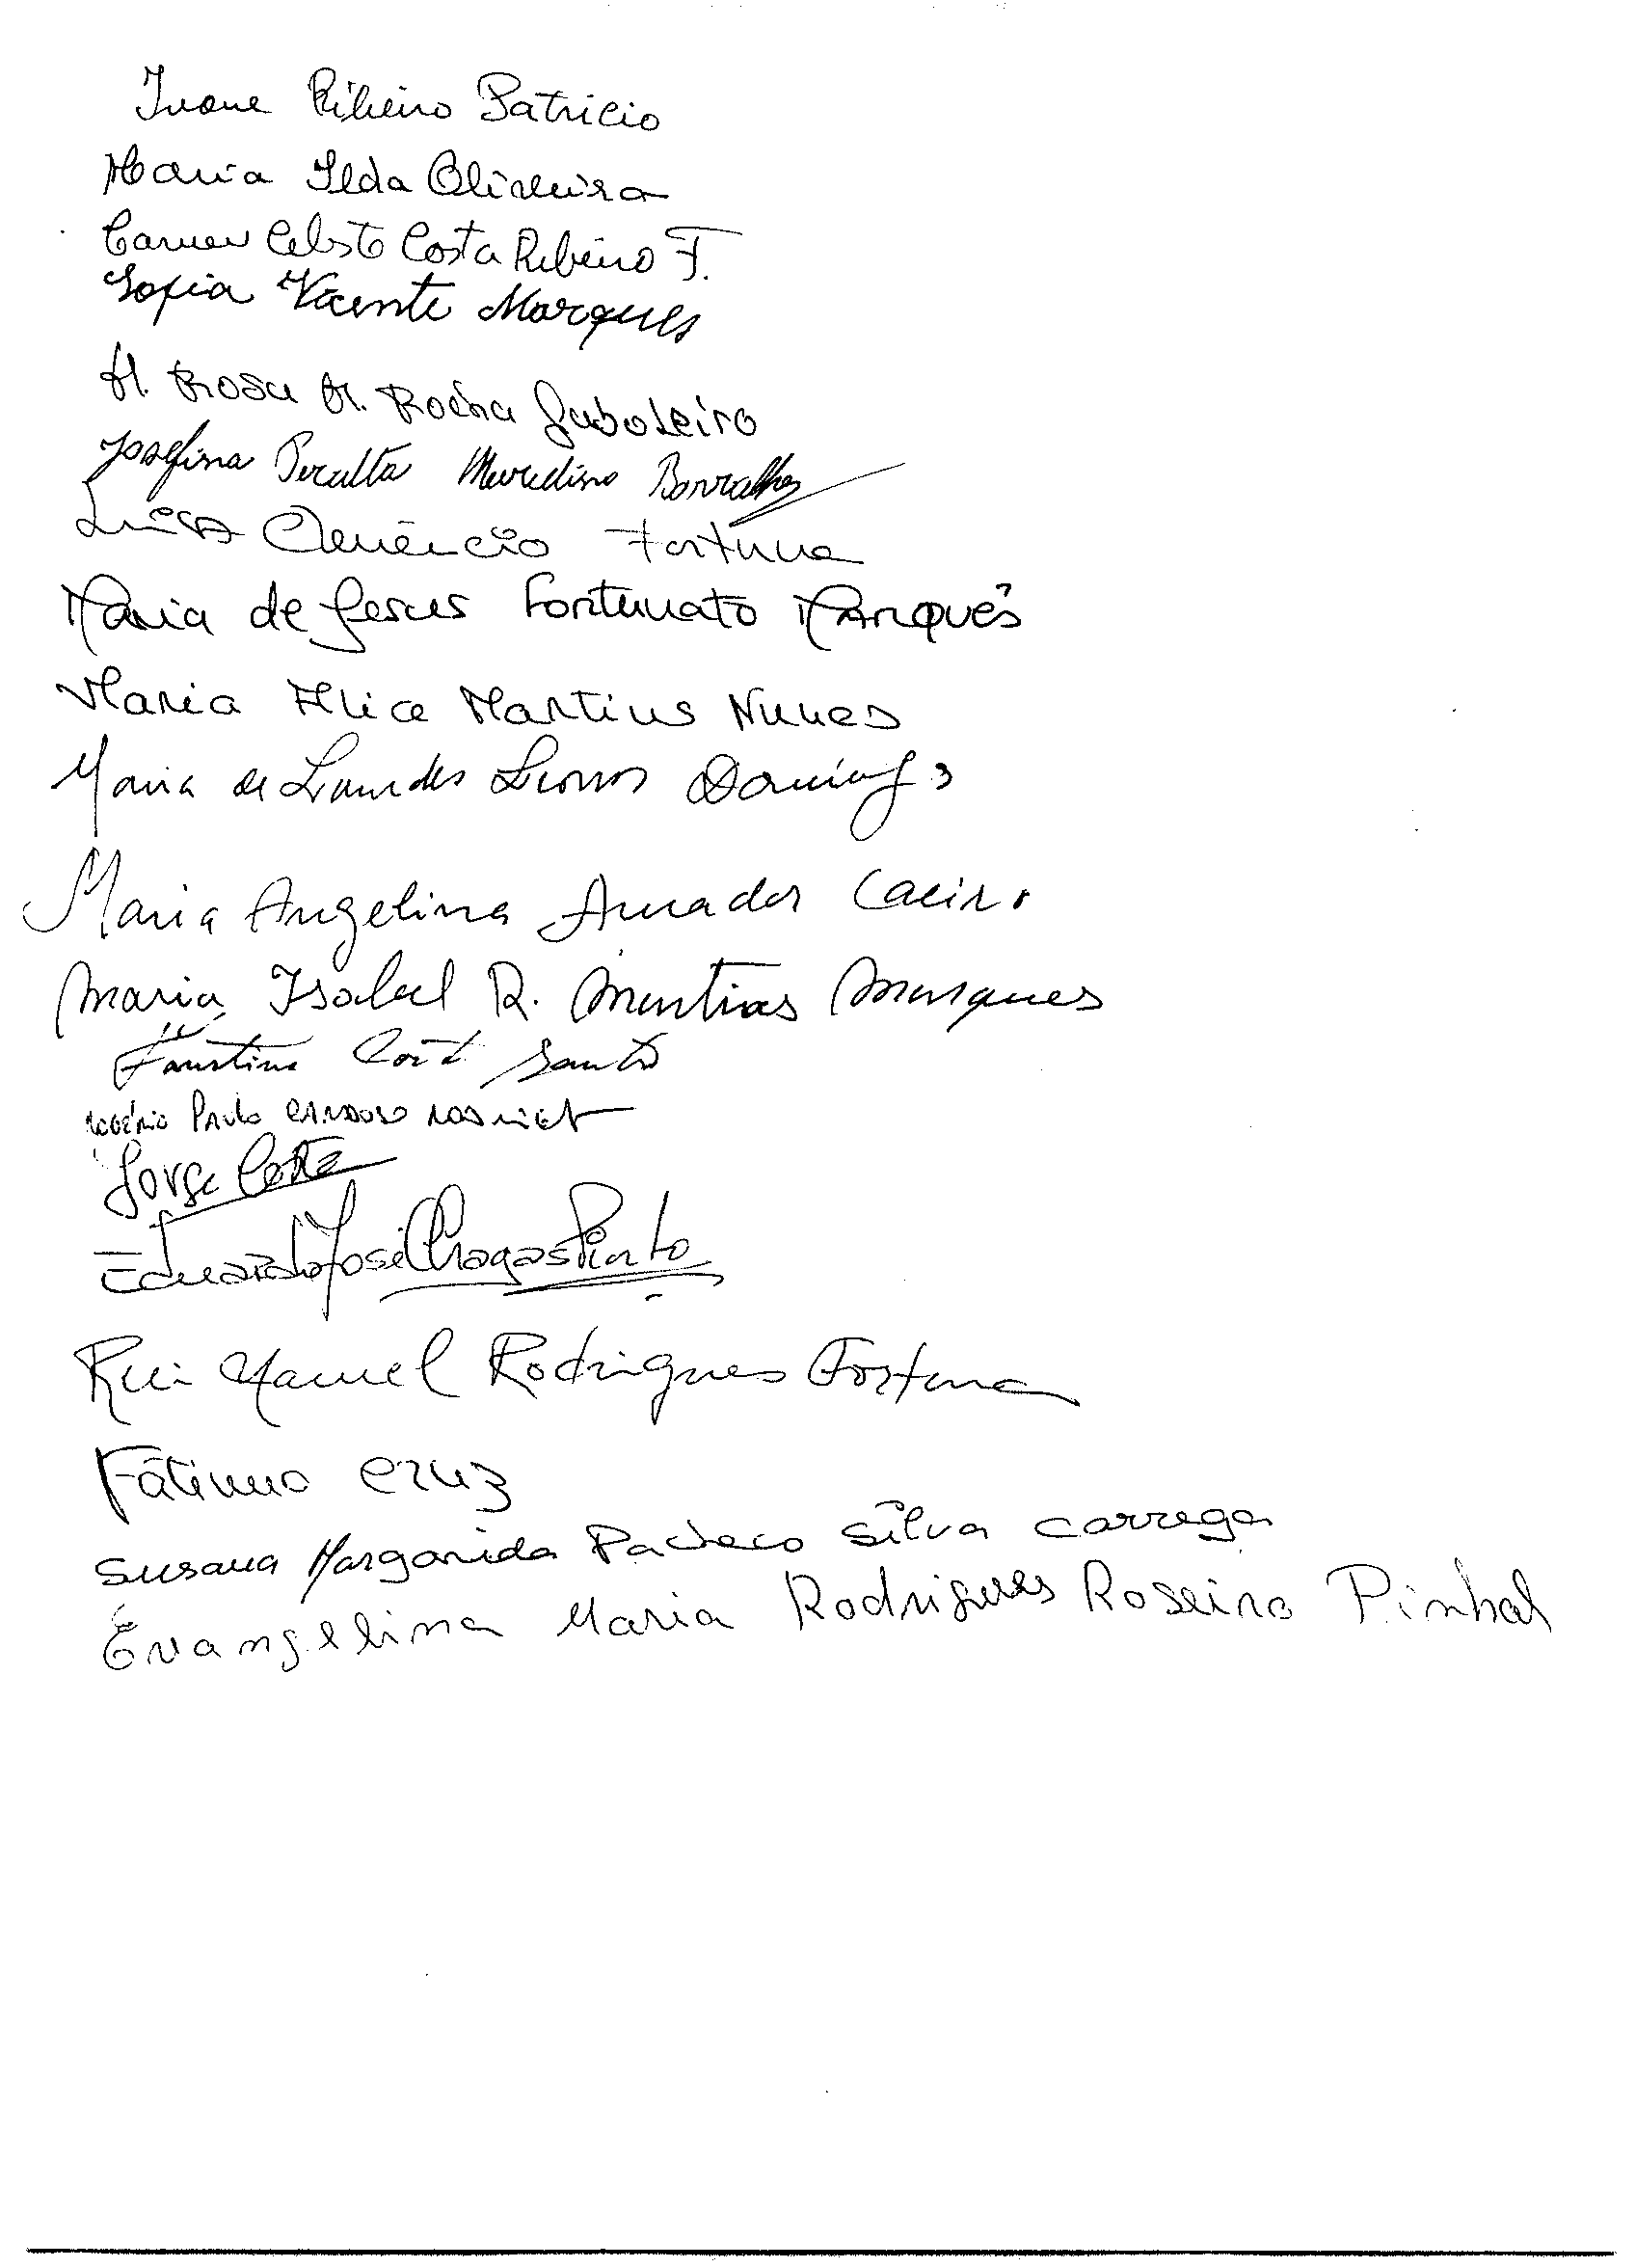 Ivone Ribeiro Patricio
Maria Ilda Oliveira
Carmen Celeste Costa Ribeiro F.
Sofia Vicente Marques
M. Rosa M. Rocha
Josefina Peralta Borralho
Luísa Fortuna
Maria de Jesus Fortunato Marquês
Maria Alice Martins Nunes
Maria de Lourdes Domingos
Maria Angelina Amador Caeiro
Maria Isabel R. Martins Marques
Faustina Santos
Rogério Paulo Cardoso
Jorge Costa
Eduardo José Chagas Pinto
Rui Manuel Rodrigues Fortuna
Fátima Cruz
Susana Margarida Pacheco Silva Carrega
Evangelina Maria Rodrigues Roseiro Pinhal